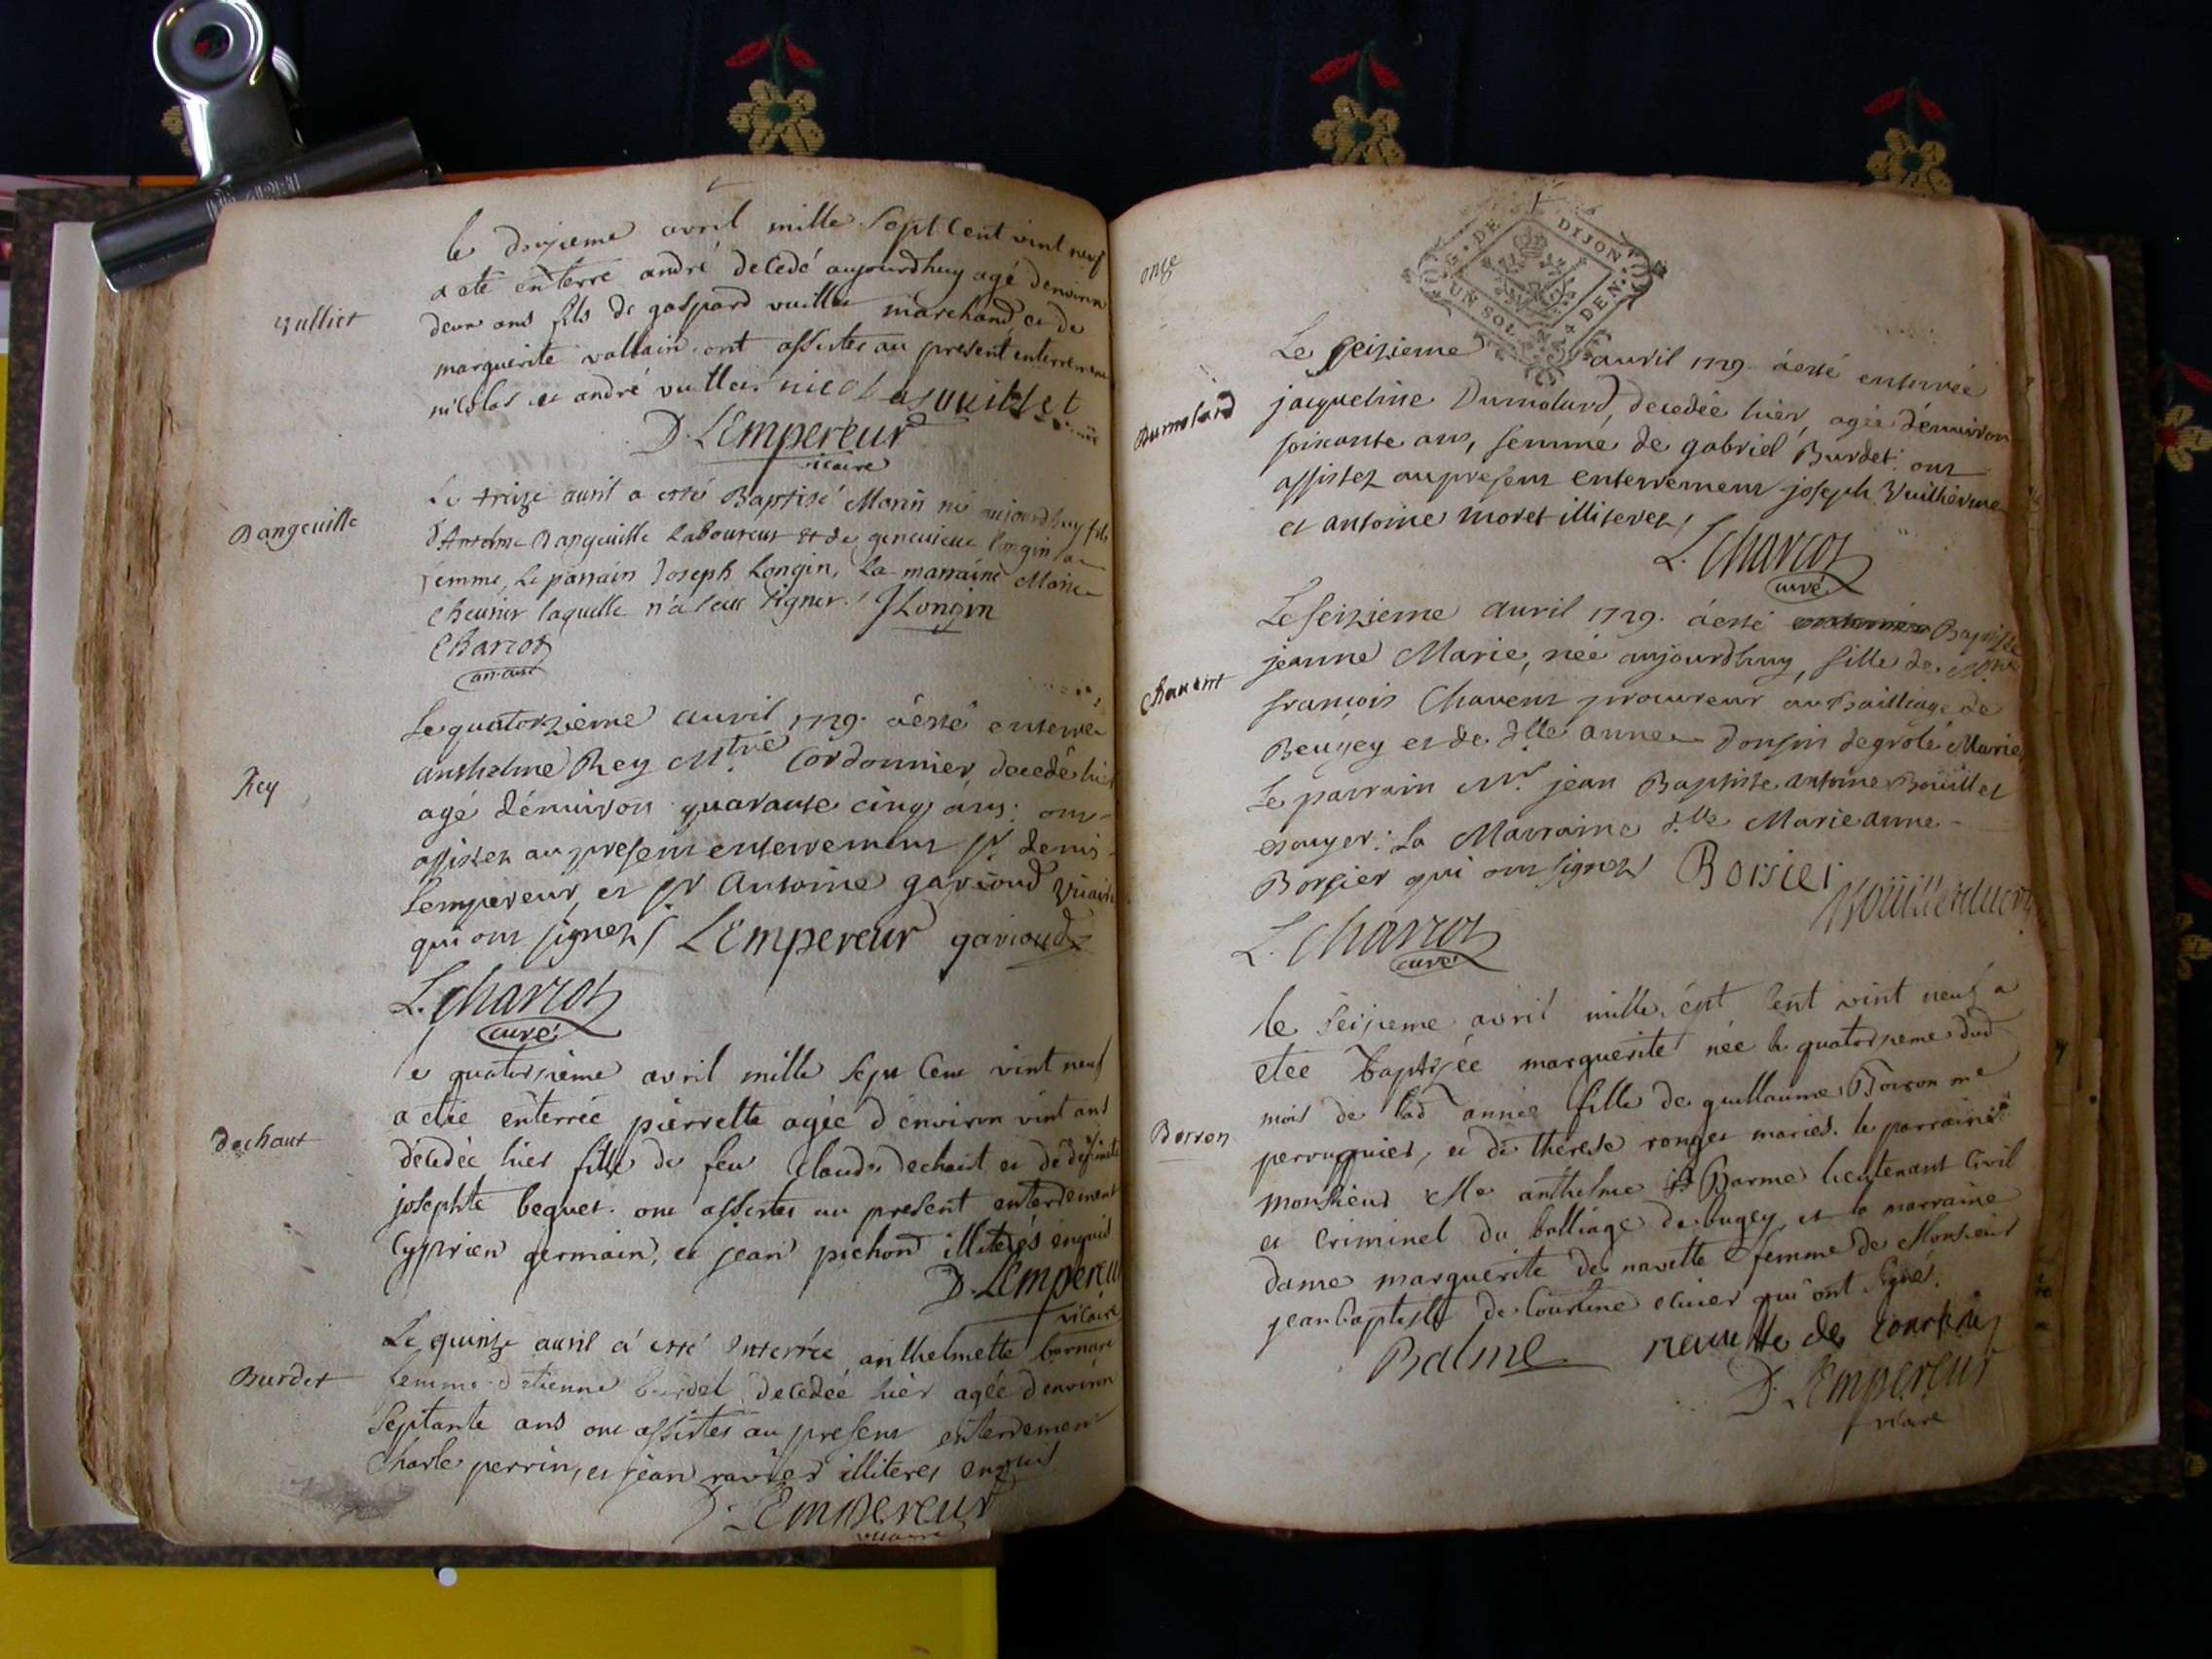 le douzieme avril mille sept cent vint neuf
a eté enterré andré decedé aujourdhuy agé denviron
deux ans fils de gaspard vuillet marchand et de
vulliet
marguerite vallain ont assistes au present enterrement
nicolas et andré vuillet nicolas vuillet
D. LEmpereur
vicaire
Le treize avril a esté Baptisé Morin né aujourdhuy fils
Dangeuille
d'Antelme Dangeuille Laboureur et de geneuieue Longin sa
femme, Le parrain Joseph Longin, La marraine Marie
Cheurier laquelle n'a sceu signer. J Longin
Charcot
Le quatorzieme auril 1729. á esté enterré
anthelme Rey Mtre Cordonnier, decedé hier
Rey
agé dénuiron quarante cinq áns. ont
assistez au present enterrement Sr. denis
Lempereur, et Sr Antoine garioud vicaire
qui ont signez LEmpereur garioud
L. Charcot
curé
le quatorzieme avril mille sept cent vint neuf
a etée enterrée pierrette agée d'environ vint ans
dechaut
décedée hier fille de feu Claude dechaut et de defunte
josephte beguet. ont assistes au present enterrement
Cyprien germain, et jean pichond illiterés enquis
D. LEmpereur
vicaire
Le quinze auril á esté Enterrée anthelmette bernard
Burdet
femme d'etienne burdet decedeé hiér agée d'environ
Septante ans ont assistes au present enterrement
Charle perrin, et jean ravier illiteres enquis
D. LEmpereur
vicaire
onze
G. DE DIJON
UN SOL 4 DEN.
Le seizieme auril 1729. á esté enterreé
Dumolard
jacqueline Dumolard, decedée hier, agée dénuiron
soixante ans, femme de gabriel Burdet. ont
assistez au present enterrement joseph Vuillierme
et antoine moret illiterez
L. Charcot
curé
Le seizieme auril 1729. á esté Baptisée
Chauent
jeanne Marie, née aujourdhuy, fille de Mtre
françois Chauent procureur au Bailliage de
Beugey et de dlle anne donsin degrole Mariez
Le parrain Mr. jean Baptiste antoine Bouillet
ecuyer: La Marraine dlle Marie anne
Borsier qui ont signez Borsier
L. Charcot
curé
le Seizieme avril mille sept Cent vint neuf a
etée baptizée marguerite née le quatorzieme dud
mois de lad année fille de guillaume Boiron me
Boiron
perruquier, et de therese ronget mariés. le parrain
Monsieur Me anthelme Barme lieutenant Civil
et Criminel du balliage de bugey et la marraine
dame marguerite de navette femme de Monsieur
jean baptiste de Courtine ecuier qui ont signés.
Balme navette de courtine
D. LEmpereur
vicaire